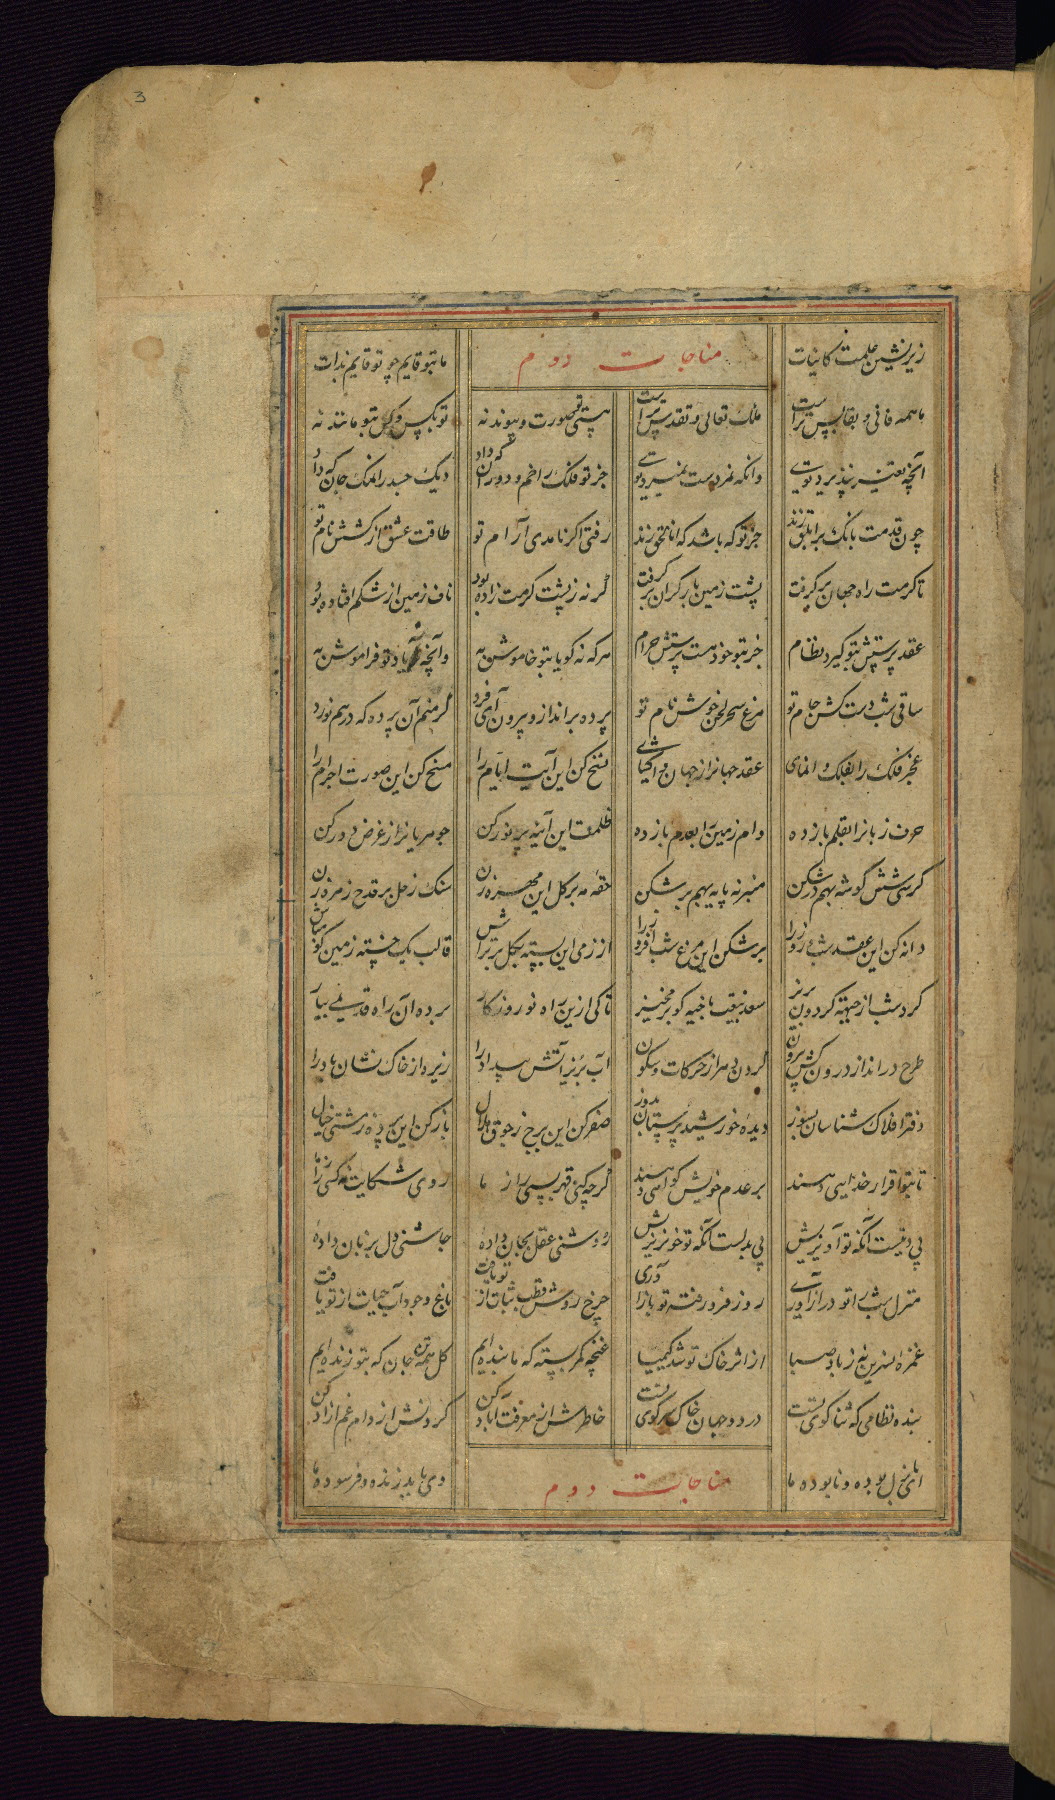 زیرنشین علمت کاینات مناجات دوم ما بتو قایم چو تو قایم بذات
ما همه فانی و بقا بس تراست ملک تعالی و تقدس تراست هستی تو صورت و پیوند نه تو بکس و کس بتو مانند نه
آنچه تغیر نپذیرد تویی وانکه نمردست و نمیرد تویی جز تو فلک را خم دوران که داد دیک جسد را نمک جان که داد
چون قدمت بانک بر ابلق زند جز تو که باشد که انا الحق زند رفتی اگر نامدی آرام تو طاقت عشق از کشش نام تو
تا کرمت راه جهان بر گرفت پشت زمین بار گران بر گرفت گر نه ز پشت کرمت زاده بود ناف زمین از شکم افتاده بود
عقد پرستش بتو گیرد نظام جز بتو خود هست پرستش حرام هر که نه گویا بتو خاموش به وآنچه نه یاد تو فراموش به
ساقی شب دست کش جام تو مرغ سحر لحن خوش نام تو پرده برانداز و برون آی فرد گر منم آن پرده که درهم نورد
عجز فلک را بفلک وانمای عقد جهانرا از جهان واگشای نسخ کن این آیت ایام را مسخ کن این صورت اجرام را
حرف زبانرا بقلم باز ده وام زمین را بعدم باز ده ظلمت این آینه پر نور کن جوهریانرا ز عرض دور کن
کرسی شش گوشه بهم در شکن منبر نه پایه بهم بر شکن حقه مه بر گل این مهره زن سنک زحل بر قدح زهره زن
دانه کن این عقد شب افروز را بر شکن این مرغ شب افروز را از زمی این پشته بگل بر تراش قالب یک خشته زمین گو مباش
گرد شب از جبهه گردون بریز تا کی ازین راه نو روزگار پرده آن راه قدیمی بیار
طرح در انداز درون کش برون گردن ما را ز حرکات و سکون آب بریز آتش بیداد را زیرتر از خاک نشان باد را
دفتر افلاک شناسان بسوز دیده خورشید پرستان بدوز صفر کن این برج ز طوق هلال باز کن این پرده ز مشتی خیال
تا بتو اقرار خدایی دهند بر عدم خویش گواهی دهند گرچه کنی قهر بسی را ز ما روی شکایت نه کسی را ز ما
بی دیتست آنکه تو آویزیش بی بدلست آنکه تو خونریزیش روشنی عقل بجان داده چاشنی دل بزبان داده
منزل شب را تو دراز آوری روز فرو رفته تو باز آوری چرخ روش قطب ثبات از تو یافت باغ وجود آب حیات از تو یافت
غمزه نسرین نه ز باد صبا از اثر خاک تو شد کیمیا غنچه کمر بسته که ما بنده‌ایم گل همه تن جان که بتو زنده‌ایم
بنده نظامی که ثنا گوی تست در دو جهان خاک سر کوی تست خاطرش از معرفت آباد کن گردنش از دام غم آزاد کن
ای بازل بوده و نابوده ما مناجات دوم وی بابد زنده و فرسوده ما